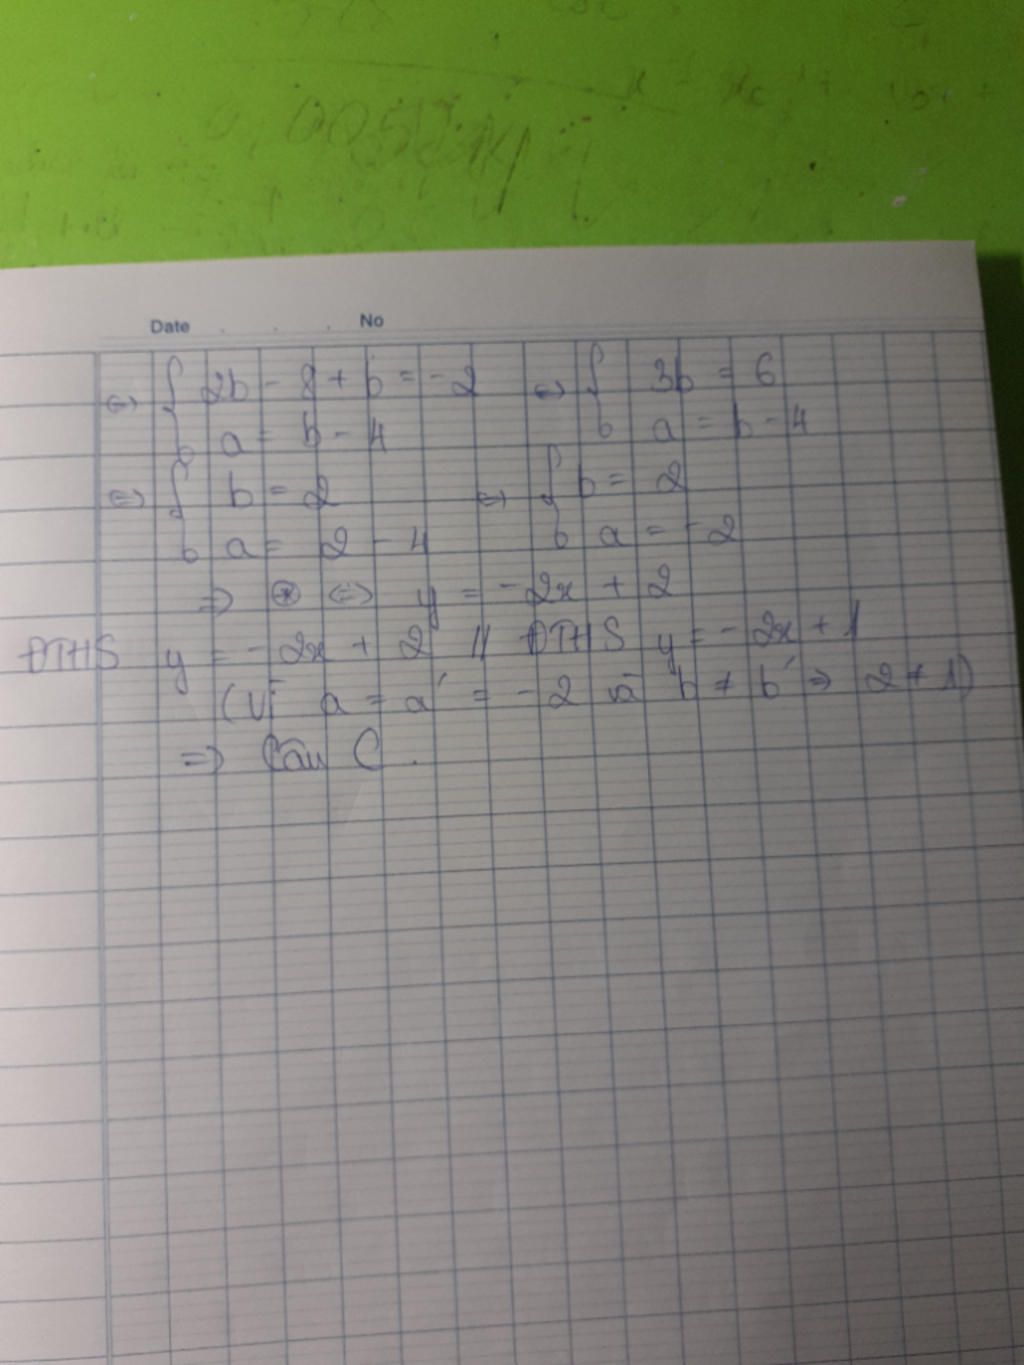 Date . . . No
⇔ { 2b - 8 + b = -2 ⇔ { 3b = 6
a = b - 4 a = b - 4
⇔ { b = 2 ⇔ { b = 2
a = 2 - 4 a = -2
⇒ ⊛ ⇔ y = -2x + 2
ĐTHS y = -2x + 2 // ĐTHS y = -2x + 1
(Vì a = a' = -2 và b ≠ b' ⇒ 2 ≠ 1)
⇒ Câu C.